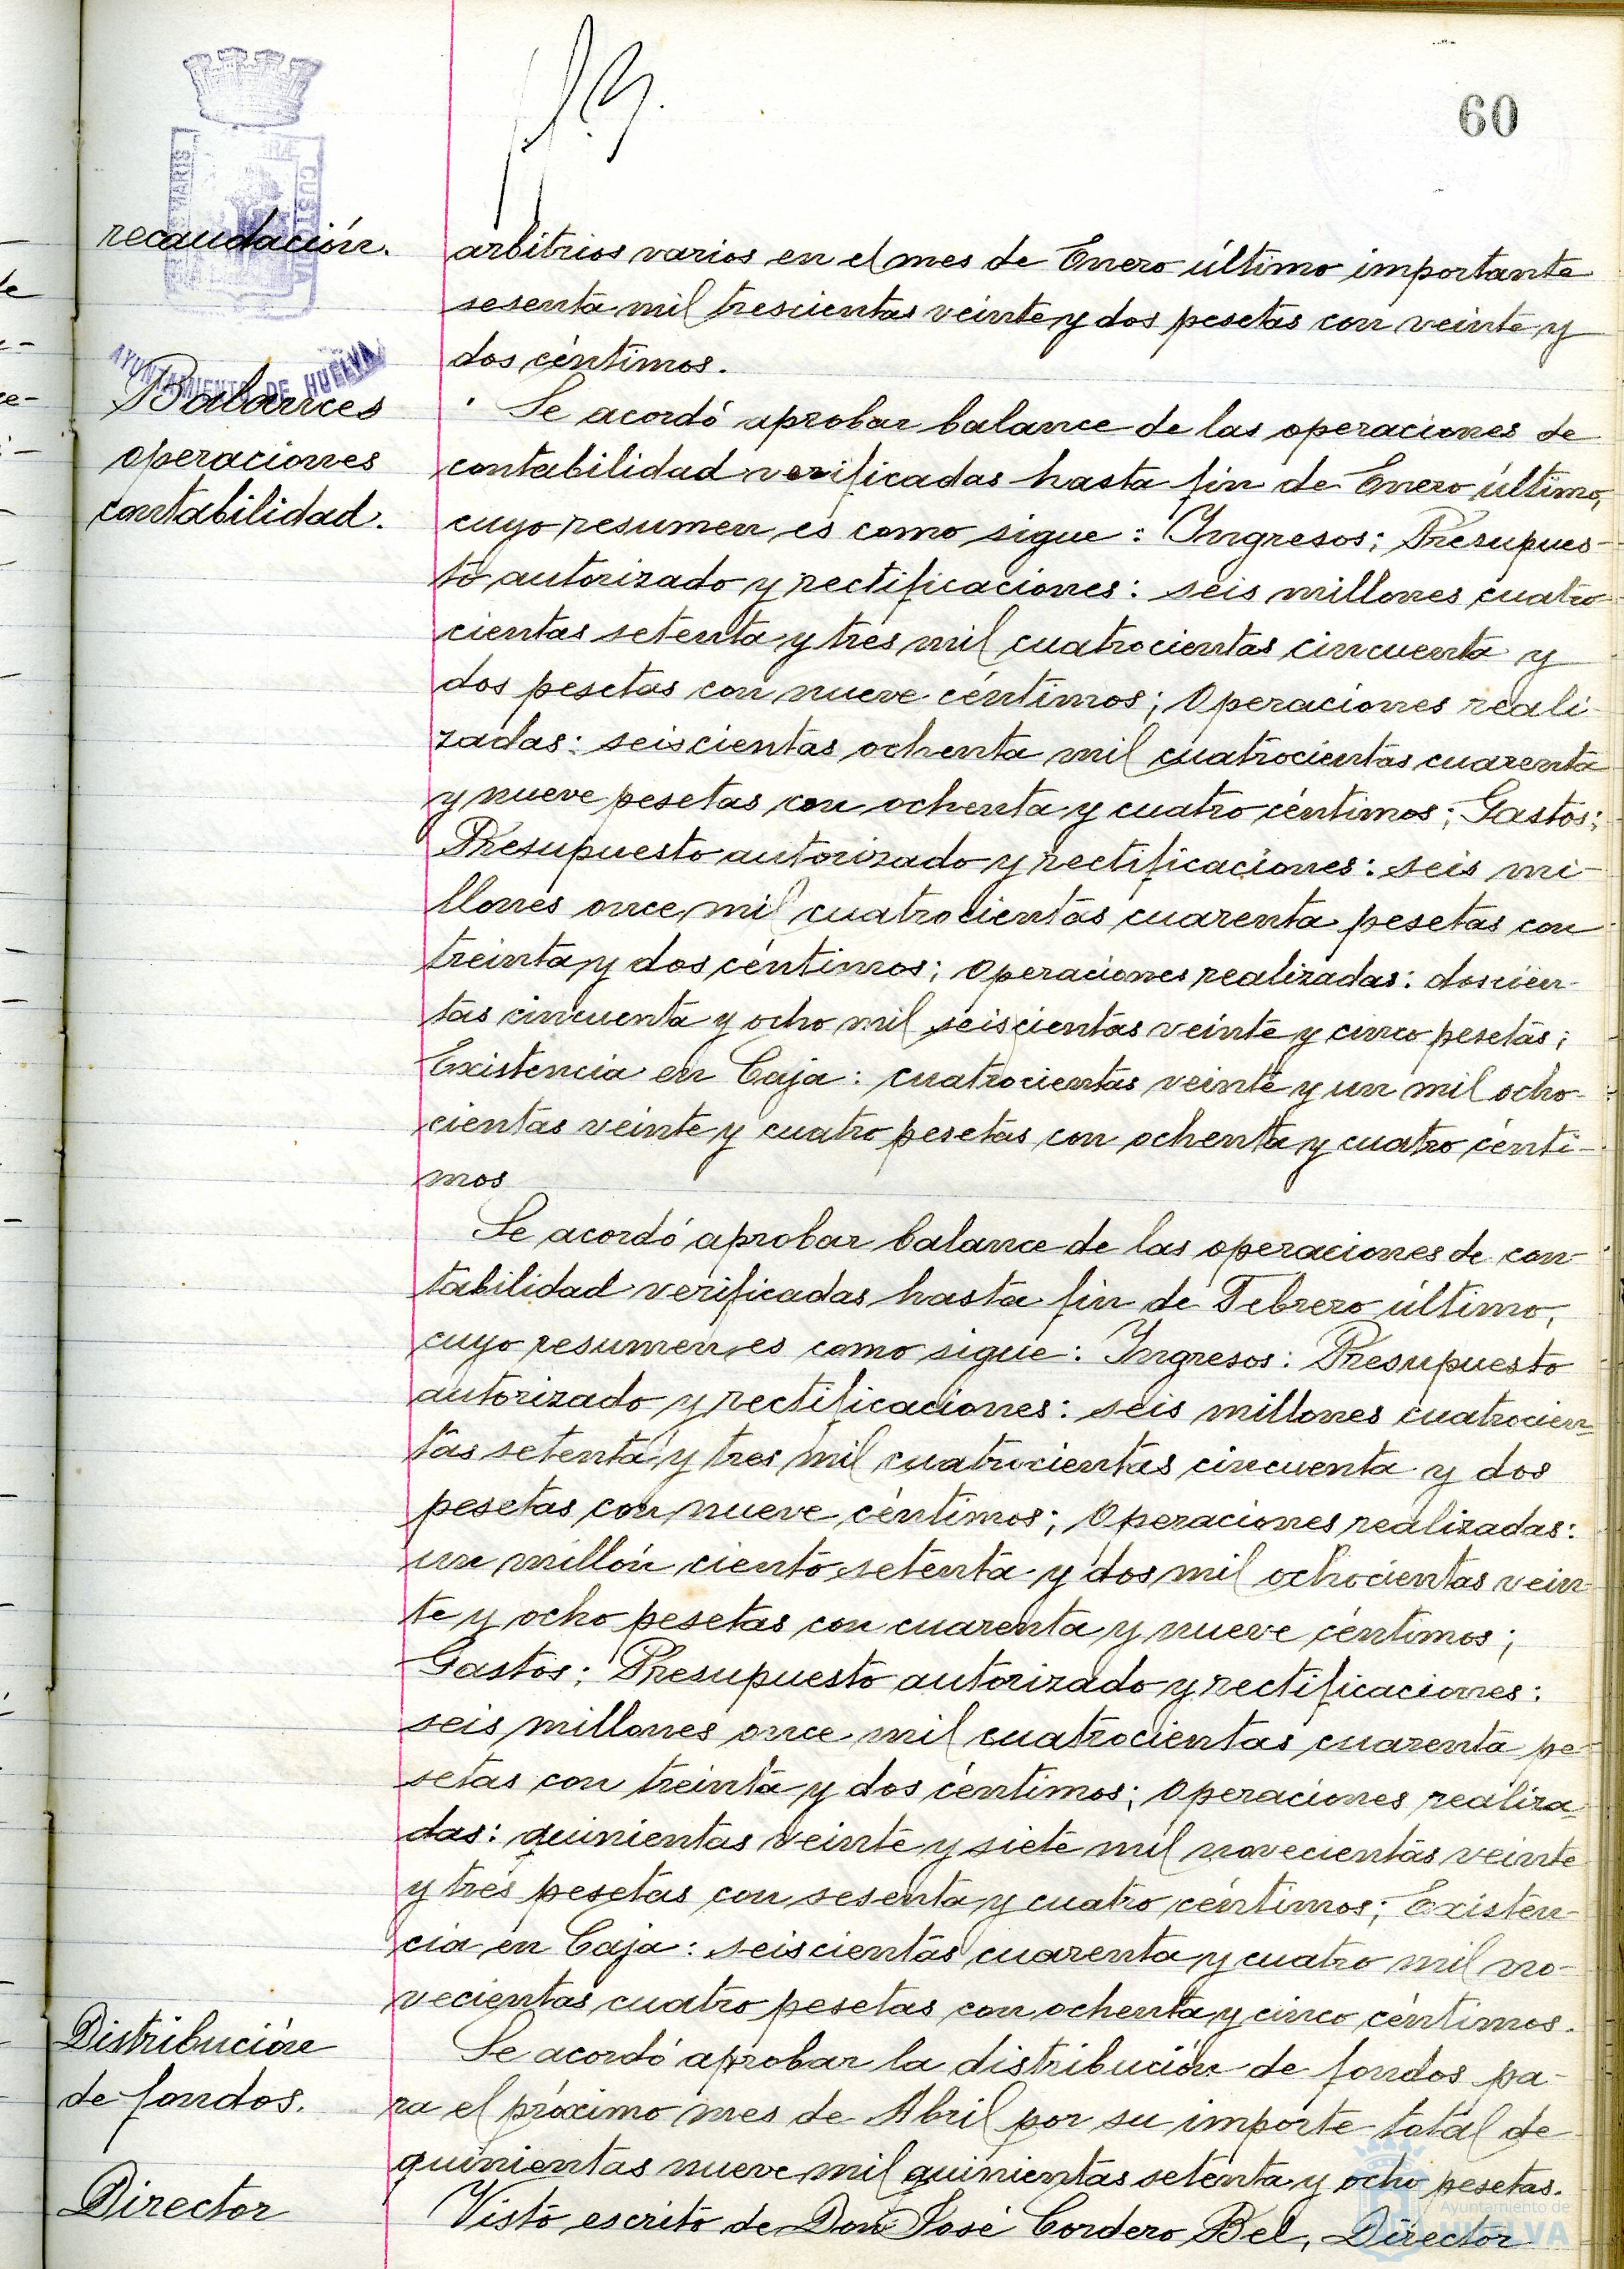 60
recaudación.
arbitrios varios en el mes de Enero último importante
sesenta mil trescientas veinte y dos pesetas con veinte y
dos céntimos.
AYUNTAMIENTO DE HUELVA
Balances
operaciones
contabilidad.
Se acordó aprobar balance de las operaciones de
contabilidad verificadas hasta fin de Enero último,
cuyo resumen es como sigue: Ingresos; Presupues-
to autorizado y rectificaciones: seis millones cuatro-
cientas setenta y tres mil cuatrocientas cincuenta y
dos pesetas con nueve céntimos; Operaciones reali-
zadas: seiscientas ochenta mil cuatrocientas cuarenta
y nueve pesetas con ochenta y cuatro céntimos; Gastos;
Presupuesto autorizado y rectificaciones: seis mi-
llones once mil cuatrocientas cuarenta pesetas con
treinta y dos céntimos; Operaciones realizadas: doscien-
tas cincuenta y ocho mil seiscientas veinte y cinco pesetas;
Existencia en Caja: cuatrocientas veinte y un mil ocho-
cientas veinte y cuatro pesetas con ochenta y cuatro cénti-
mos
Se acordó aprobar balance de las operaciones de con-
tabilidad verificadas hasta fin de Febrero último,
cuyo resumen es como sigue: Ingresos: Presupuesto
autorizado y rectificaciones: seis millones cuatrocien-
tas setenta y tres mil cuatrocientas cincuenta y dos
pesetas con nueve céntimos; Operaciones realizadas:
un millón ciento setenta y dos mil ochocientas vein-
te y ocho pesetas con cuarenta y nueve céntimos;
Gastos; Presupuesto autorizado y rectificaciones:
seis millones once mil cuatrocientas cuarenta pe-
setas con treinta y dos céntimos; Operaciones realiza-
das: quinientas veinte y siete mil novecientas veinte
y tres pesetas con sesenta y cuatro céntimos; Existen-
cia en Caja: seiscientas cuarenta y cuatro mil no-
vecientas cuatro pesetas con ochenta y cinco céntimos.
Distribución
de fondos.
Se acordó aprobar la distribución de fondos pa-
ra el próximo mes de Abril por su importe total de
quinientas nueve mil quinientas setenta y ocho pesetas.
Director
Visto escrito de Don José Cordero Bel, Director
Ayuntamiento de
HUELVA